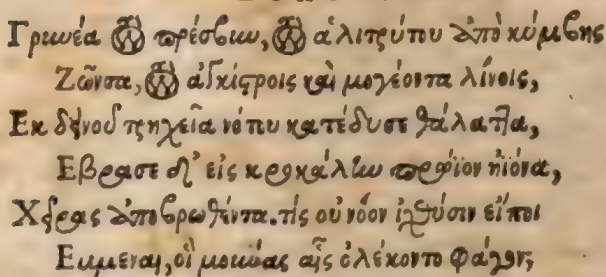 Γρυνέα τὸν πρέσβυν, τὸν ἁλιτρύτου ἀπὸ κύμβης
Ζῶντα, τὸν ἀγκίστροις καὶ μογέοντα λίνοις,
Εκ δεινοῦ τρηχεῖα νότου κατέδυσε θάλαττα,
Εβρασε δ' εἰς κροκάλην πρώϊον ἠϊόνα,
Χεῖρας ἀποβρωθέντα. τίς οὐ νόον ἰχθύσιν εἴποι
Εμμεναι, οἳ μούνας αἷς ὀλέκοντο φάγον;